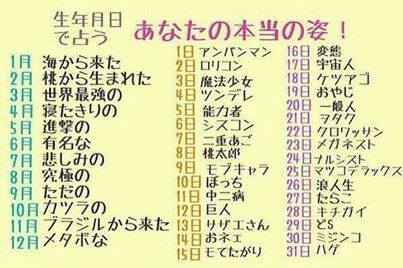 生年月日
で占う
あなたの本当の姿！
1月 海から来た
2月 桃から生まれた
3月 世界最強の
4月 寝たきりの
5月 進撃の
6月 有名な
7月 悲しみの
8月 究極の
9月 ただの
10月 カツラの
11月 ブラジルから来た
12月 メタボな
1日 アンパンマン
2日 ロリコン
3日 魔法少女
4日 ツンデレ
5日 能力者
6日 シスコン
7日 二重あご
8日 桃太郎
9日 モブキャラ
10日 ぼっち
11日 中二病
12日 巨人
13日 サザエさん
14日 おネェ
15日 モてたがり
16日 変態
17日 宇宙人
18日 ケツアゴ
19日 おやじ
20日 一般人
21日 ヲタク
22日 クロワッサン
23日 メガネスト
24日 ナルシスト
25日 マツコデラックス
26日 浪人生
27日 たらこ
28日 キチガイ
29日 どS
30日 ミジンコ
31日 ハゲ